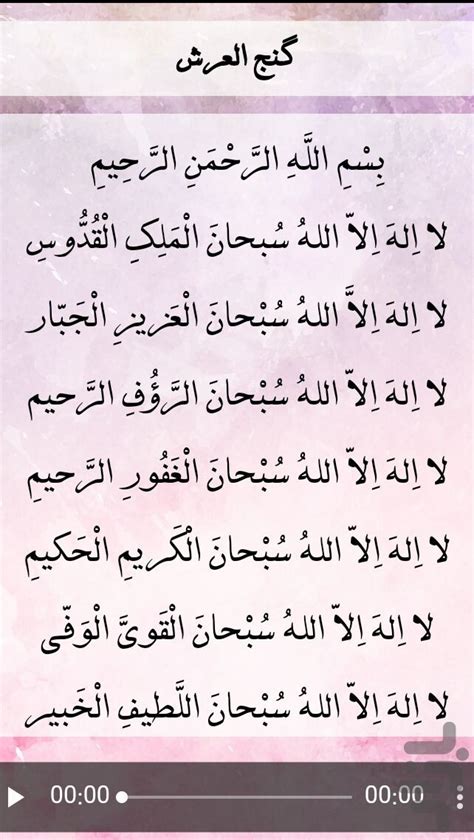 گنج العرش
بِسْمِ اللَّهِ الرَّحْمَنِ الرَّحِيمِ
لا اِلهَ اِلاّ اللهُ سُبحانَ الْمَلِكِ الْقُدُّوسِ
لا اِلهَ اِلاَّ اللهُ سُبْحانَ الْعَزيزِ الْجَبّار
لا اِلهَ اِلاّ اللهُ سُبْحانَ الرَّؤُفِ الرَّحيم
لا اِلهَ اِلاّ اللهُ سُبْحانَ الْغَفُورِ الرَّحيمِ
لا اِلهَ اِلاّ اللهُ سُبْحانَ الْكَريمِ الْحَكيمِ
لا اِلهَ اِلاّ اللهُ سُبْحانَ الْقَویَّ الْوَفّی
لا اِلهَ اِلاّ اللهُ سُبْحانَ اللَّطيفِ الْخَبير
00:00 00:00